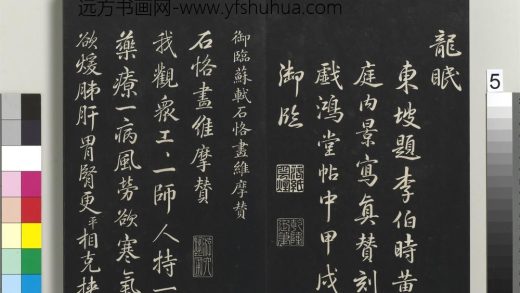 远方书画网-www.yfshuhua.com
5
龍眠
東坡題李伯時黄
庭内景寫真贊刻
戲鴻堂帖中甲戌
御臨
御臨蘇軾石恪畫維摩贊
石恪畫維摩贊
我觀衆工工一師人持一
藥療一病風勞欲寒氣
欲煖肺肝胃腎更平相克挟